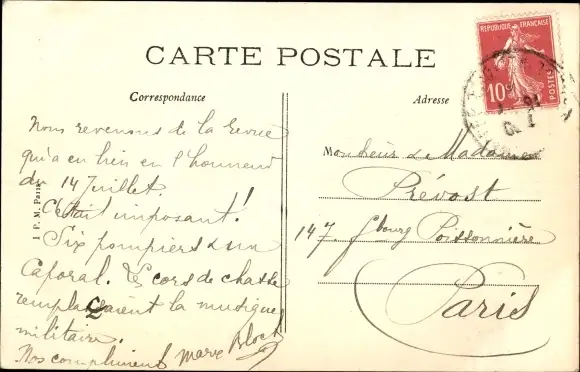 CARTE POSTALE
Correspondance
Adresse
RÉPUBLIQUE FRANÇAISE
10c
POSTES
Nous revenons de la Revue
qu'a eu lieu en l'honneur
du 14 Juillet.
C'était imposant!
Six pompiers & un
Caporal. Le cors de chasse
remplaçaient la musique
militaire.
Nos compliments Marx Bloch
I P. M. Paris
Monsieur & Madame
Prévost
147 fbourg Poissonnière
Paris